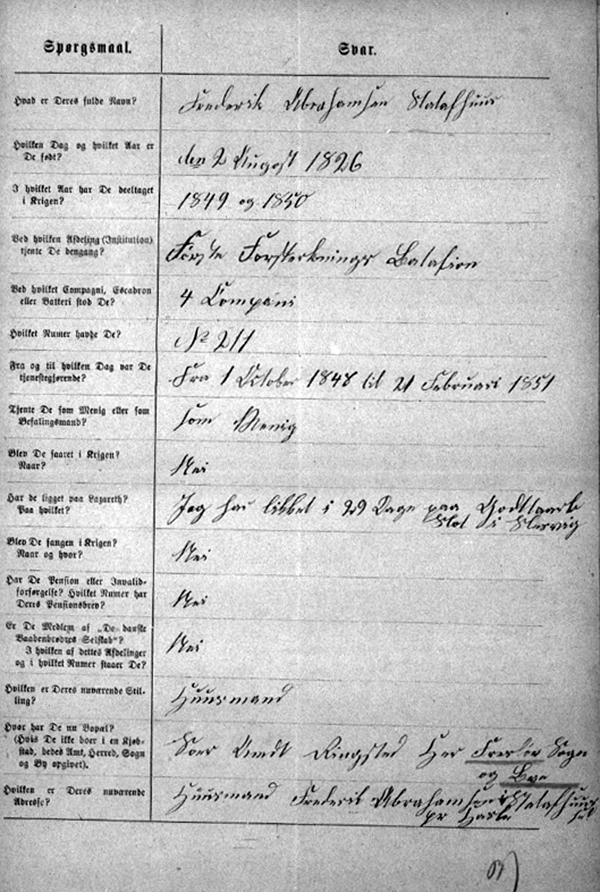 Spørgsmaal. Svar.
Hvad er Deres fulde Navn? Frederik Abrahamsen Stalafhuus
Hvilken Dag og hvilket Aar er De født? den 2 August 1826
I hvilket Aar har De deeltaget i Krigen? 1849 og 1850
Ved hvilken Afdeling (Institution) tjente De dengang? Første Forsterknings Batalion
Ved hvilket Compagni, Escadron eller Batteri stod De? 4 Compani
Hvilket Numer havde De? No 211
Fra og til hvilken Dag var De tjenestegjørende? Fra 1 October 1848 til 21 Februari 1851
Tjente De som Menig eller som Befalingsmand? som Menig
Blev De saaret i Krigen? Naar? Nei
Har de ligget paa Lazareth? Paa hvilket? Jeg har ligget i Dage paa Slot i Slesvig
Blev De fangen i Krigen? Naar og hvor? Nei
Har De Pension eller Invalidforsørgelse? Hvilket Numer har Deres Pensionsbrev? Nei
Er De Medlem af „De danske Vaabenbrødres Selskab"? I hvilken af dettes Afdelinger og i hvilket Numer staaer De? Nei
Hvilken er Deres nuværende Stilling? Huusmand
Hvor har De nu Bopæl? (Hvis De ikke boer i en Kjøbstad, bedes Amt, Herred, Sogn og By opgivet). Soer Amdt Ringsted Her Sogn og
Hvilken er Deres nuværende Adresse? Huusmand Frederik Abrahamsen i Stalafhuus pr